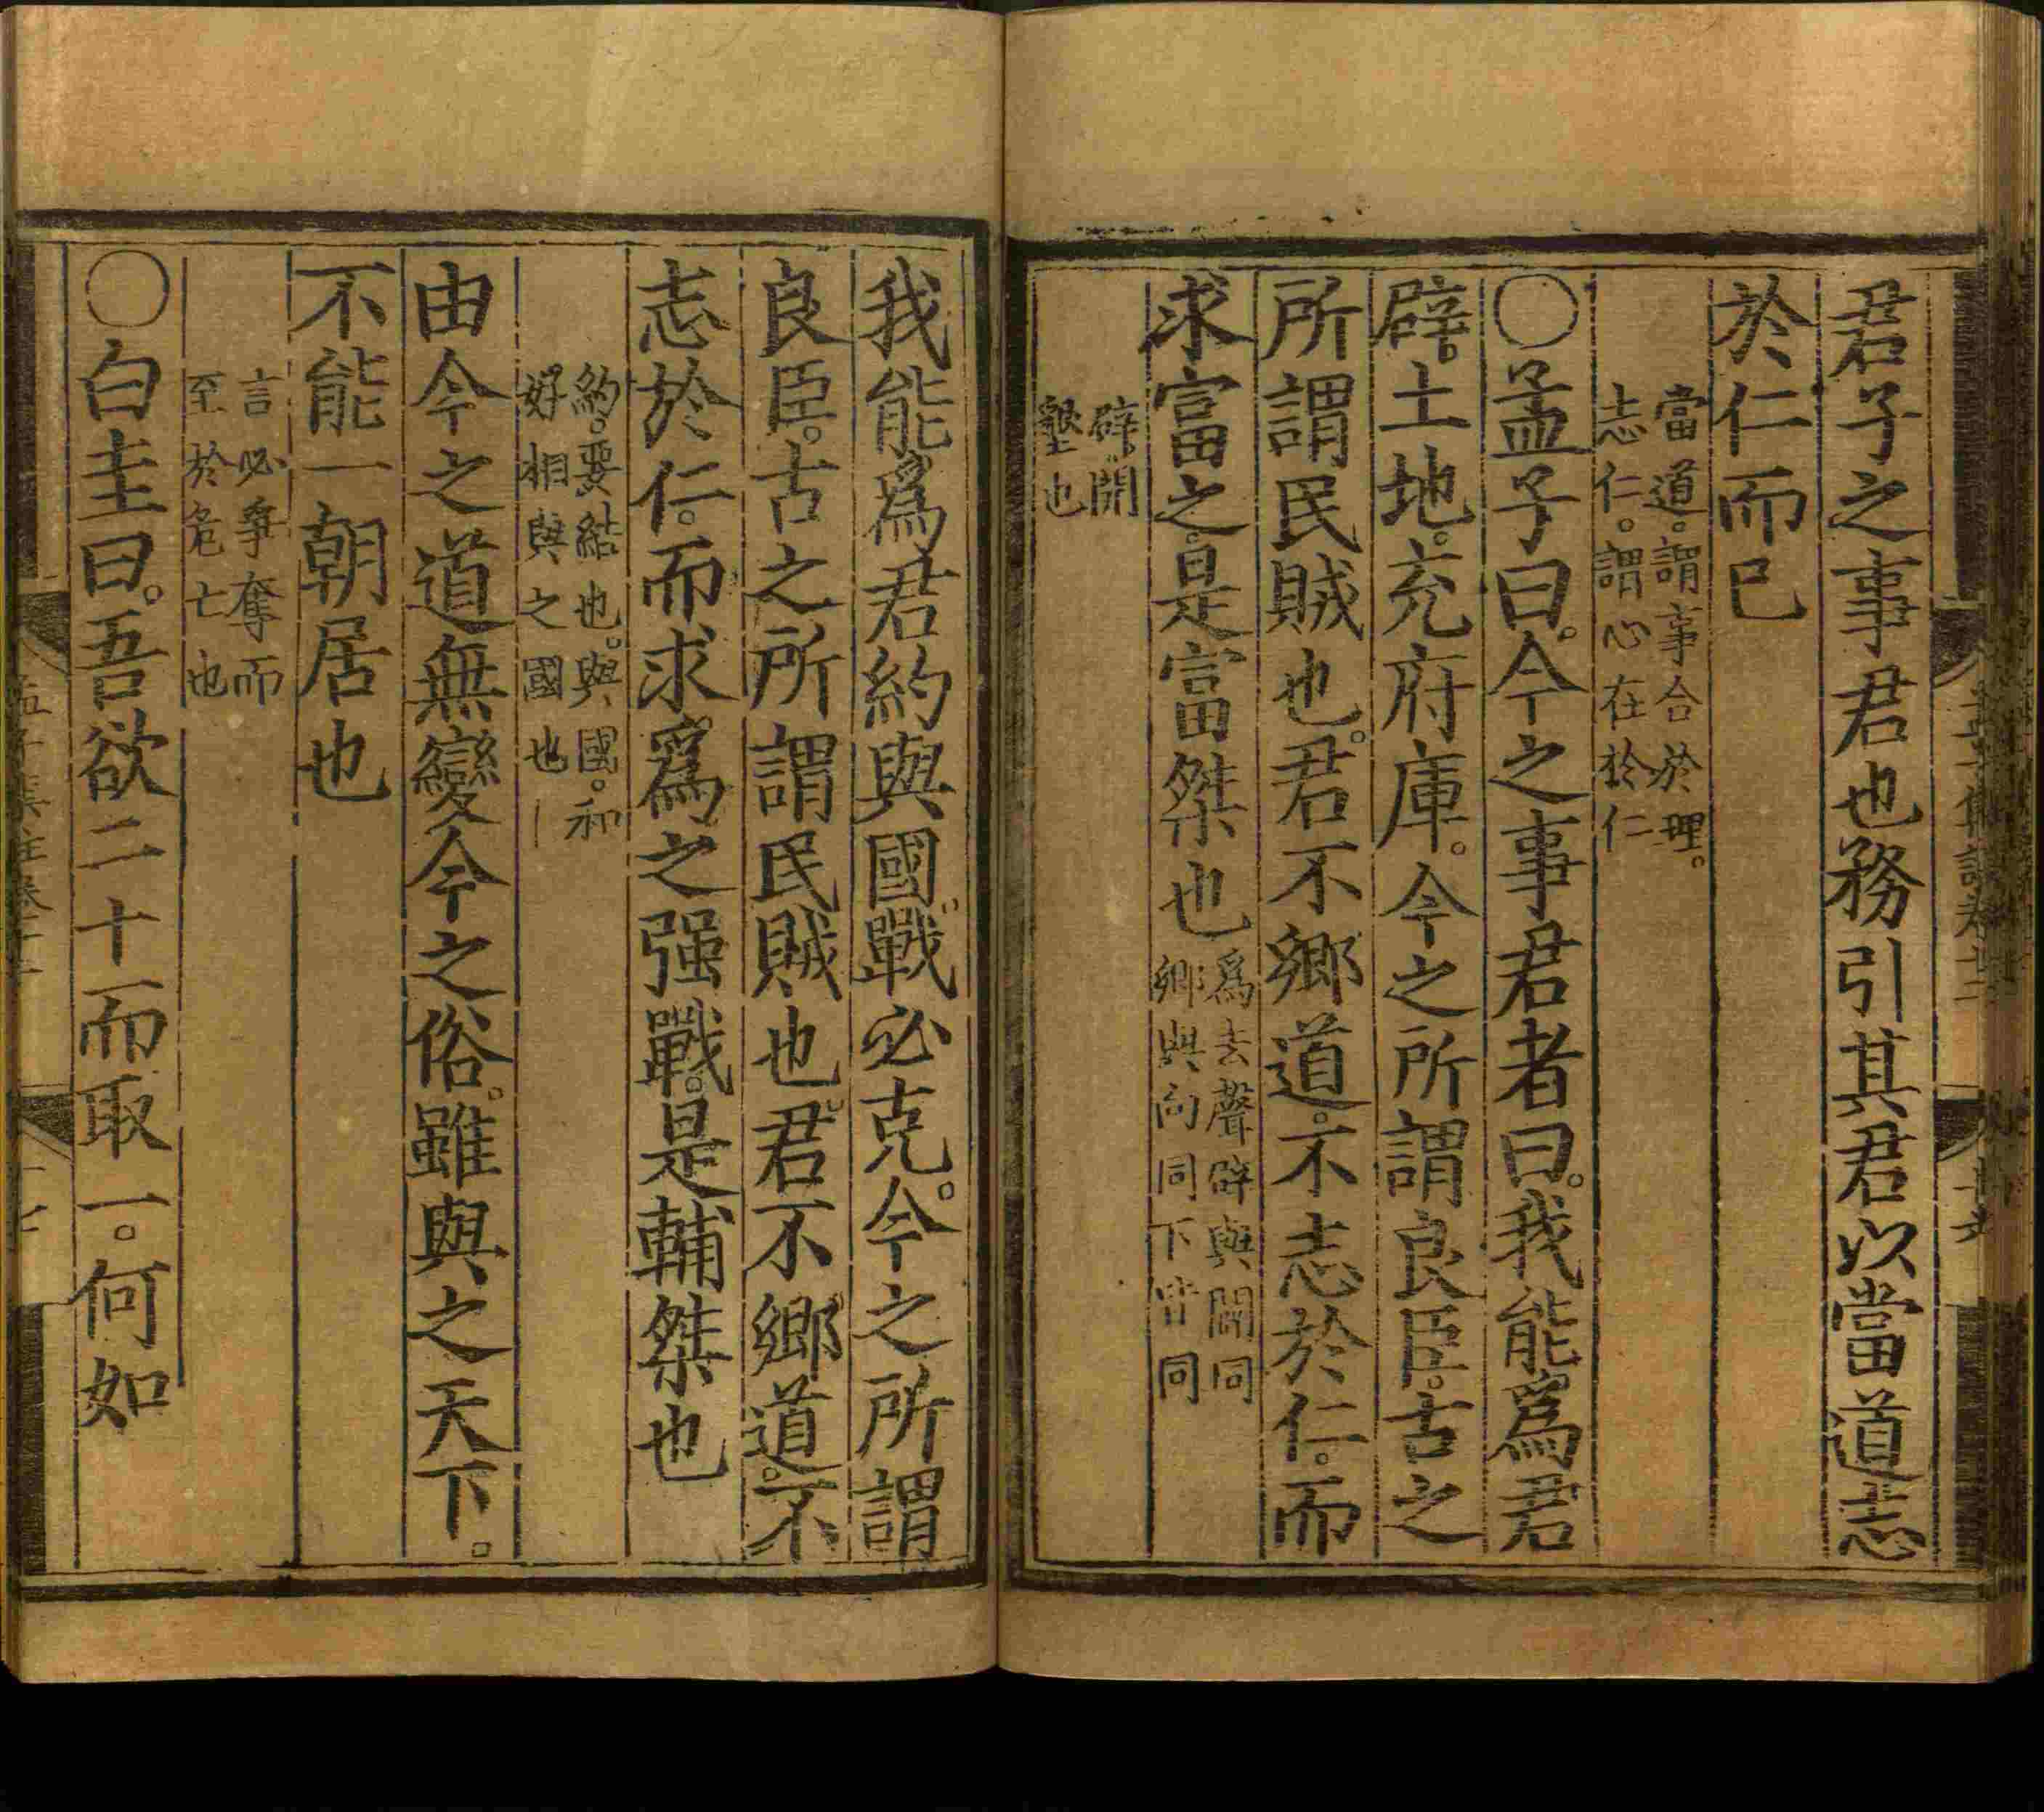 君子之事君也務引其君以當道志
於仁而已
當道。謂事合於理。
志仁。謂心在於仁
○孟子曰。今之事君者曰。我能爲君
辟。土地。充府庫。今之所謂良臣。古之
所謂民賊也。君不鄉道。不志於仁。而
求富之。是富桀也
爲去聲辟與闢同
鄉與向同下皆同
辟。開
墾也
我能爲君約與國。戰必克。今之所謂
良臣。古之所謂民賊也。君不鄉道。不
志於仁。而求爲之强戰。是輔桀也
約。要結也。與國。和
好相與之國也
由今之道無變今之俗。雖與之天下。
不能一朝居也
言必爭奪而
至於危亡也
○白圭曰。吾欲二十而取一。何如